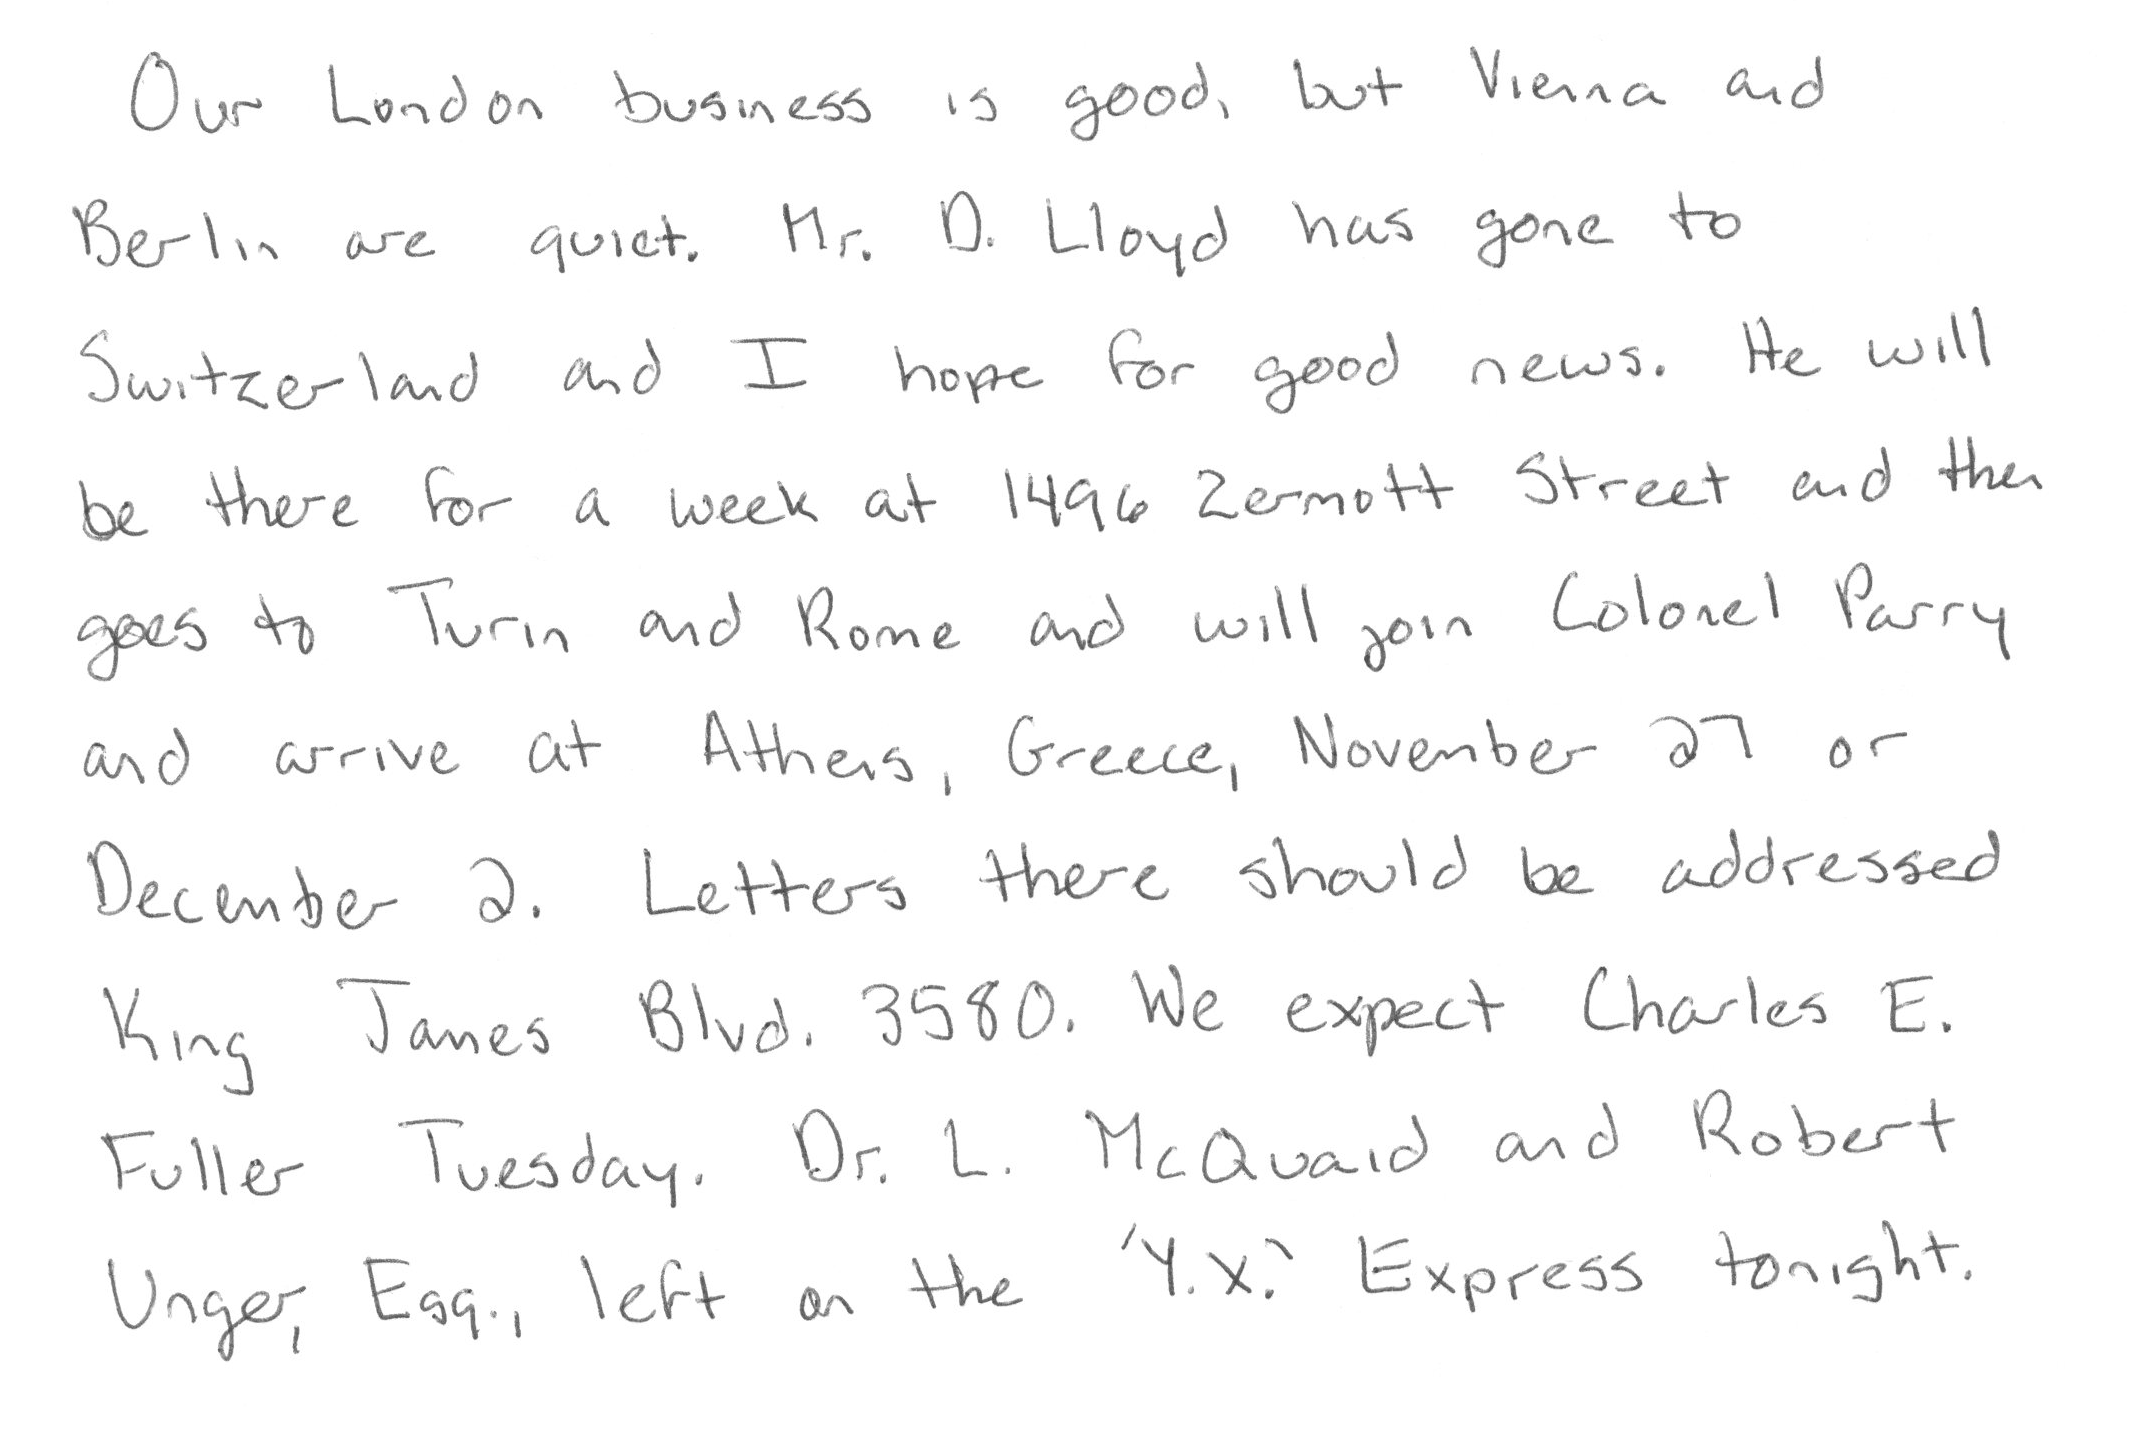 Our London business is good, but Vienna and
Berlin are quiet. Mr. D. Lloyd has gone to
Switzerland and I hope for good news. He will
be there for a week at 1496 Zermott Street and then
goes to Turin and Rome and will join Colonel Parry
and arrive at Athens, Greece, November 27 or
December 2. Letters there should be addressed
King James Blvd. 3580. We expect Charles E.
Fuller Tuesday. Dr. L. McQuaid and Robert
Unger, Esq., left on the 'Y.X.' Express tonight.